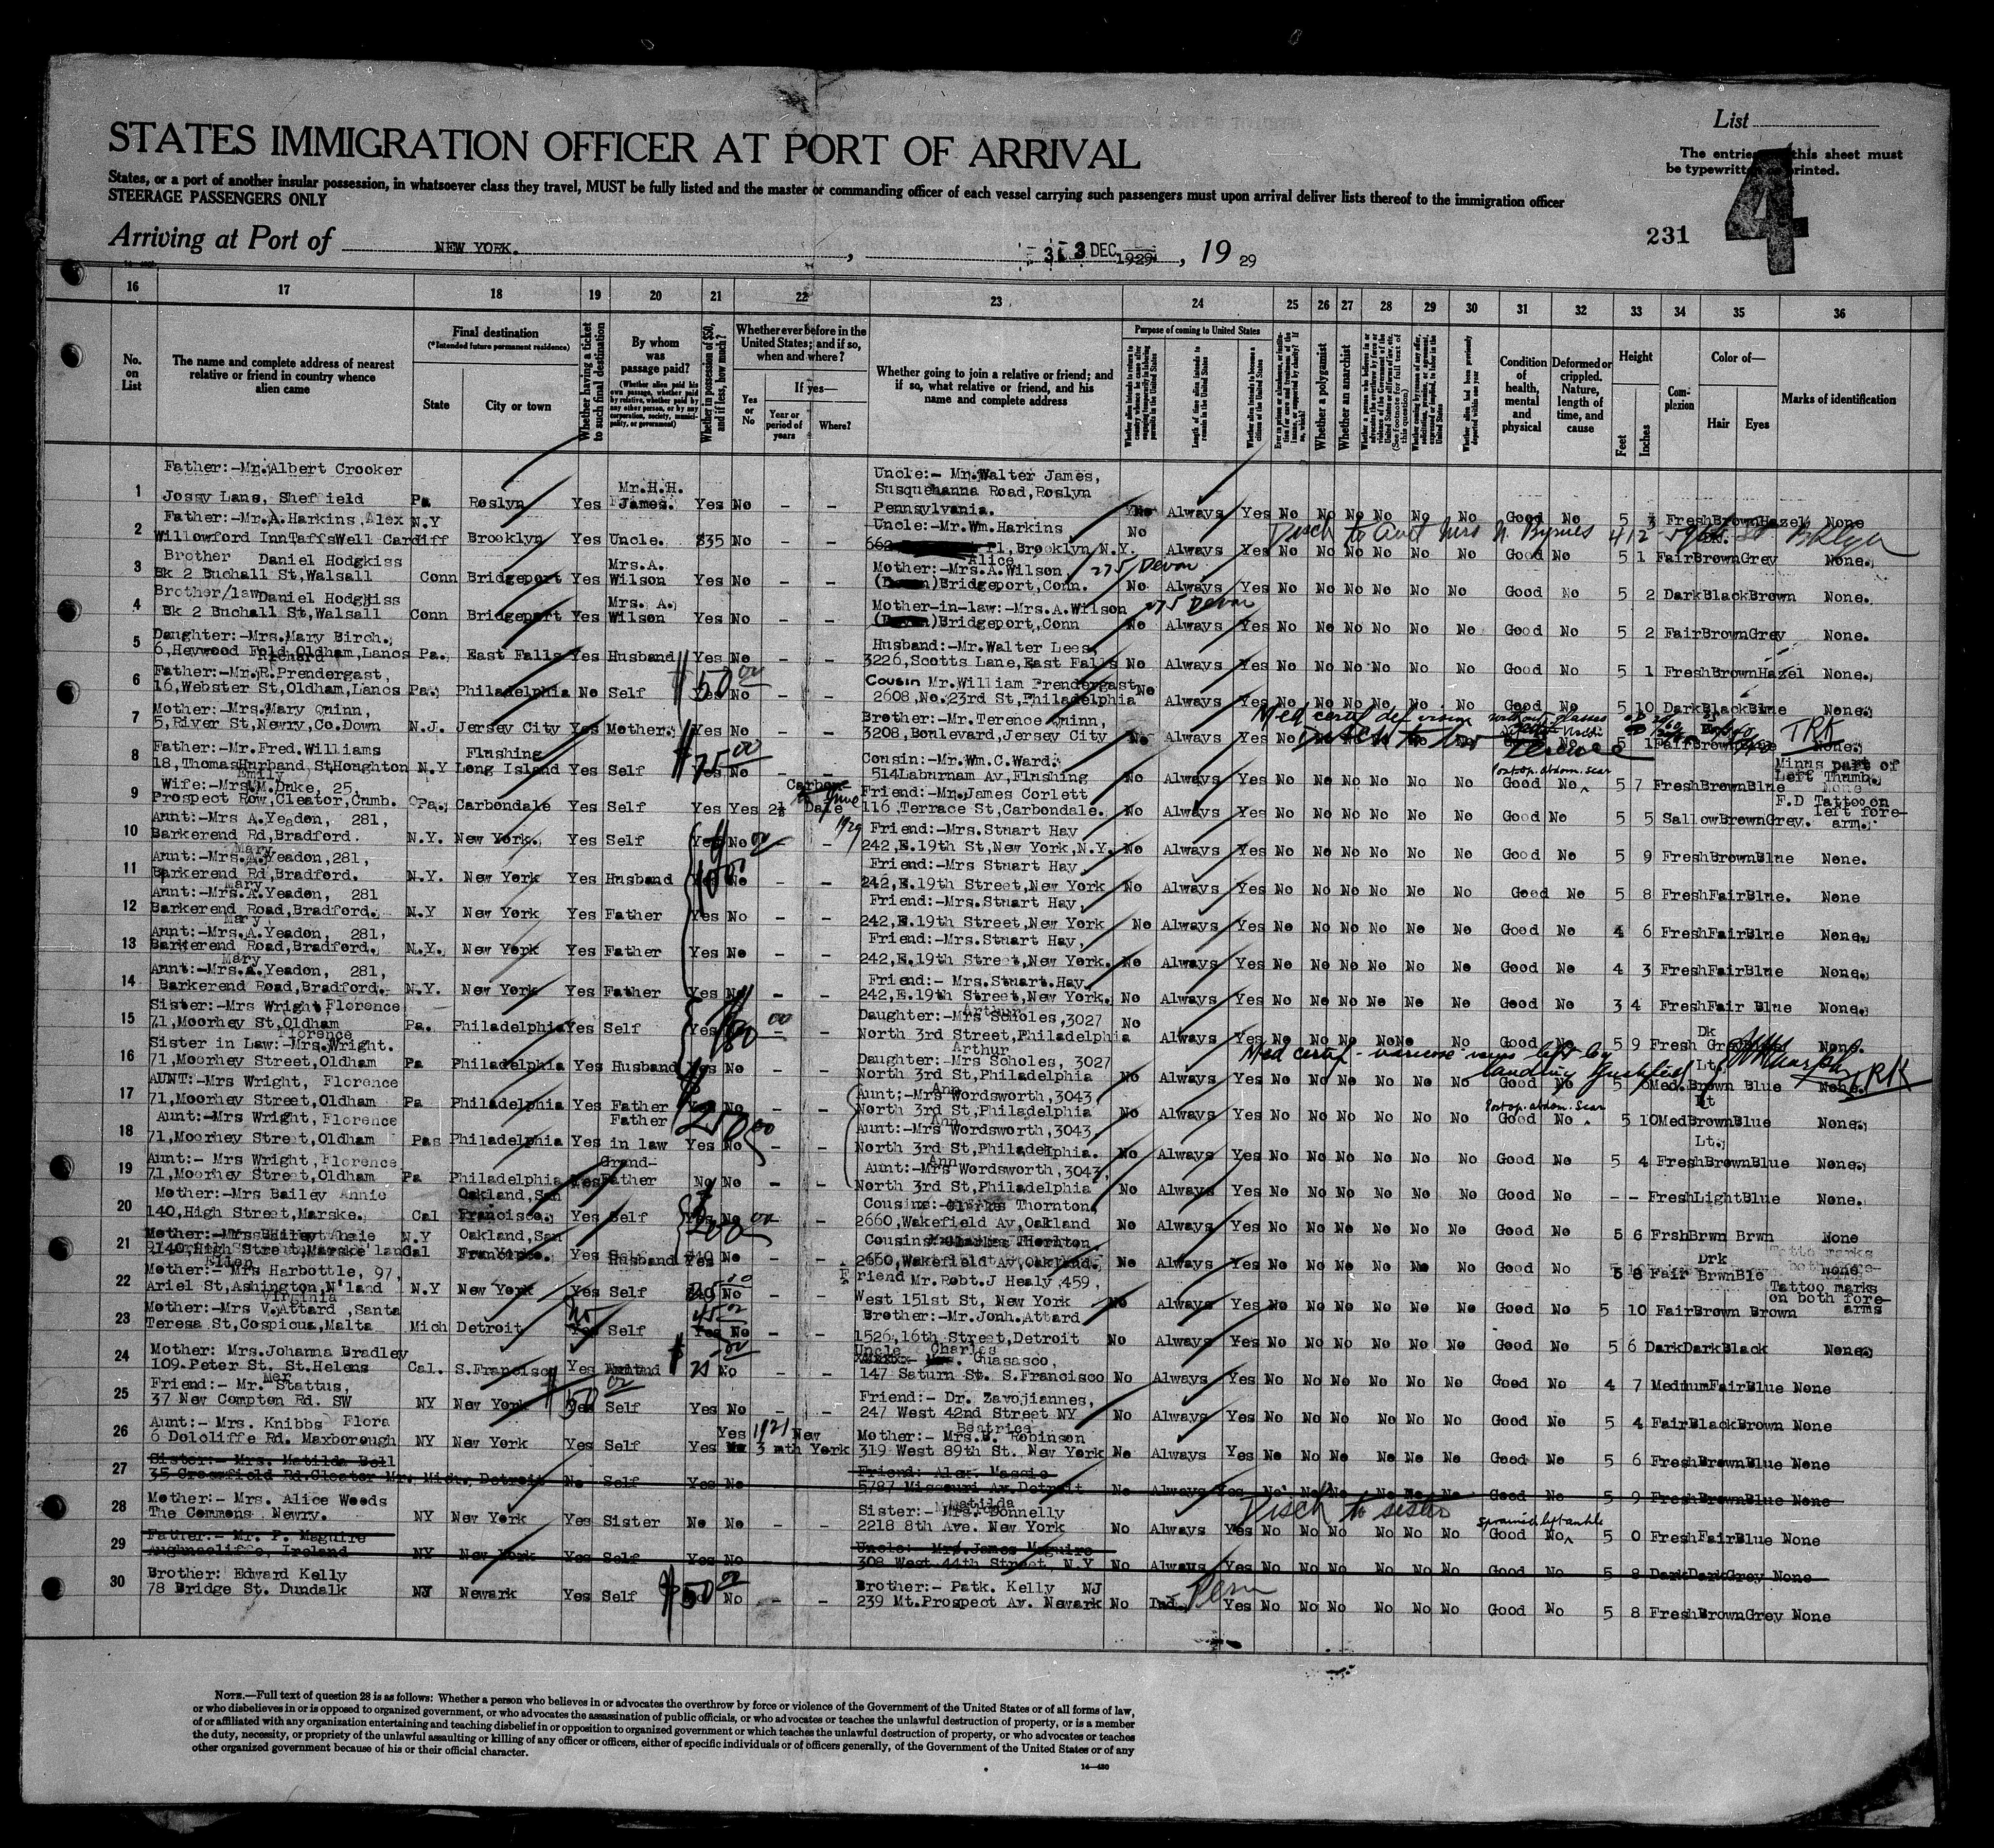 List
STATES IMMIGRATION OFFICER AT PORT OF ARRIVAL
The entries this sheet must
be typewritten or printed.
4
States, or a port of another insular possession, in whatsoever class they travel, MUST be fully listed and the master or commanding officer of each vessel carrying such passengers must upon arrival deliver lists thereof to the immigration officer
STEERAGE PASSENGERS ONLY
231
Arriving at Port of NEW YORK. , 3 DEC 1929 , 19 29
16 17 18 19 20 21 22 23 24 25 26 27 28 29 30 31 32 33 34 35 36
No. on List
The name and complete address of nearest relative or friend in country whence alien came
Final destination
(*Intended future permanent residence)
State
City or town
Whether having a ticket to such final destination
By whom was passage paid?
(Whether alien paid his own passage, whether paid by relative, whether paid by any other person, or by any corporation, society, municipality, or government)
Whether in possession of $50, and if less, how much?
Whether ever before in the United States; and if so, when and where?
Yes or No
If yes—
Year or period of years
Where?
Whether going to join a relative or friend; and if so, what relative or friend, and his name and complete address
Purpose of coming to United States
Length of time alien intends to remain in the United States
Whether alien intends to become a citizen of the United States
Whether a polygamist
Whether an anarchist
Condition of health, mental and physical
Deformed or crippled. Nature, length of time, and cause
Height
Feet
Inches
Complexion
Color of—
Hair
Eyes
Marks of identification
1 Father:-Mr.Albert Crooker Uncle:- Mr.Walter James,
Jossy Lane, Sheffield Pa Roslyn Yes Mr.H.H. James. Yes No - - Susquehanna Road,Roslyn
Pennsylvania. Always Yes No No No No No No Good No 5 3 Fresh Brown Hazel None
2 Father:-Mr.A.Harkins, Alex N.Y Uncle:-Mr.Wm.Harkins No
Willowford InnTaffsWell Cardiff Brooklyn Yes Uncle. $35 No - - 662 Pl,Brooklyn N.Y. Always Yes No No No No No No Good No 5 1 Fair Brown Grey None.
Disch to aunt Mrs N. Byrnes 412
3 Brother Daniel Hodgkiss
Bk 2 Buchall St,Walsall Conn Bridgeport Yes Mrs.A. Wilson Yes No - - Mother:-Mrs.A.Wilson, Alice 275 Devon
Bridgeport,Conn. No Always Yes No No No No No No Good No 5 2 Dark Black Brown None.
4 Brother/law Daniel Hodgkiss
Bk 2 Buchall St,Walsall Conn Bridgeport Yes Mrs. A. Wilson Yes No - - Mother-in-law:-Mrs.A.Wilson 275 Devon
Bridgeport,Conn No Always Yes No No No No No No Good No 5 2 Fair Brown Grey None.
5 Daughter:-Mrs.Mary Birch.,
6,Heywood Fold,Oldham,Lancs Pa. East Falls Yes Husband Yes No - - Husband:-Mr.Walter Lees,
3226,Scotts Lane,East Falls No Always Yes No No No No No No Good No 5 1 Fresh Brown Hazel None.
6 Father:-Mr.R.Prendergast, Richard
16,Webster St,Oldham,Lancs Pa. Philadelphia No Self $50 00 Yes No - - Cousin Mr.William Prendergast
2608,No.23rd St,Philadelphia No Always Yes No No No No No No Good No 5 10 Dark Black Blue None.
7 Mother:-Mrs.Mary Quinn,
5,River St,Newry,Co.Down N.J. Jersey City Yes Mother. Yes No - - Brother:-Mr.Terence Quinn,
3208,Boulevard,Jersey City No Always Yes No No No
Med certif def vision without glasses
Disch to bro Terence TRK
8 Father:-Mr.Fred.Williams
18,Thomas Husband St Houghton N.Y Flushing Long Island Yes Self $75 00 Yes No - - Cousin:-Mr.Wm.C.Ward.
514 Laburnam Av,Flushing No Always Yes No No No No No No Good No 5 7 Fresh Brown Blue
Post op. abdom. scar Minus part of Left Thumb.
9 Wife:-Mrs.M.Duke, 25, Emily
Prospect Row,Cleator,Cumb. Pa. Carbondale Yes Self Yes Yes 2½ Carbon-Dale June 1929 Friend:-Mr.James Corlett
116,Terrace St,Carbondale. No Always Yes No No No No No No Good No 5 5 Sallow Brown Grey. F.D Tattoo on left fore-arm.
10 Aunt:-Mrs A.Yeadon, 281,
Barkerend Rd,Bradford. N.Y. New York. Yes Self No - Friend:-Mrs.Stuart Hay
242,E.19th St,New York,N.Y. No Always Yes No No No No No No Good No 5 9 Fresh Brown Blue None.
11 Aunt:-Mrs.A.Yeadon,281, Mary
Barkerend Rd,Bradford. N.Y. New York Yes Husband No - - Friend:-Mrs Stuart Hay
242,E.19th Street,New York No Always Yes No No No No No No Good No 5 8 Fresh Fair Blue. None
12 Aunt:-Mrs.A.Yeadon, 281 Mary
Barkerend Road,Bradford. N.Y New York Yes Father Yes No - - Friend:-Mrs.Stuart Hay,
242,E.19th Street,New York No Always Yes No No No No No No Good No 4 6 Fresh Fair Blue None.
13 Aunt:-Mrs.A.Yeadon, 281, Mary
Barkerend Road,Bradford. N.Y. New York Yes Father Yes No - - Friend:-Mrs.Stuart Hay,
242,E.19th Street,New York. No Always Yes No No No No No No Good No 4 3 Fresh Fair Blue None.
14 Aunt:-Mrs.A.Yeadon, 281, Mary
Barkerend Road,Bradford. N.Y. New York Yes Father Yes No - - Friend:- Mrs.Stuart.Hay.
242,E.19th Street,New York. No Always Yes No No No No No No Good No 3 4 Fresh Fair Blue None.
15 Sister:-Mrs Wright Florence
71,Moorhey St,Oldham Pa. Philadelphia Yes Self Yes - Daughter:-Mrs Scholes,3027 Arthur
North 3rd Street,Philadelphia No Always Yes No No No No None No Good No 5 9 Fresh Dk None.
16 Sister in Law:-Mrs.Wright. Florence
71,Moorhey Street,Oldham Pa Philadelphia Yes Husband Yes No - - Daughter:-Mrs Scholes, 3027 Arthur
North 3rd St,Philadelphia No Always Yes No No No No No No Good No 5 Med. Lt. Brown Blue None.
Med certif - varicose veins left leg TRK
17 AUNT:-Mrs Wright, Florence
71,Moorhey Street,Oldham Pa Philadelphia Yes Father No - - Aunt:-Mrs Wordsworth,3043 Ann
North 3rd St,Philadelphia No Always Yes No No No No No No Good No 5 10 Med Brown Blue None.
Post op. abdom. scar
18 Aunt:-Mrs Wright, Florence
71,Moorhey Street,Oldham Pas Philadelphia Yes Father in law Yes No - - Aunt:-Mrs Wordsworth,3043, Ann
North 3rd St,Philadelphia. No Always Yes No No No No No No Good No 5 4 Fresh Lt. Brown Blue None.
19 Aunt:- Mrs Wright, Florence
71,Moorhey Street,Oldham Pa Philadelphia Yes Grand-Father No No - - Aunt:-Mrs Wordsworth,3043, Ann
North 3rd St,Philadelphia No Always Yes No No No No No No Good No - - Fresh Light Blue None.
20 Mother:-Mrs Bailey Annie
140,High Street,Marske. Cal Oakland,San Francisco. Yes Self No - - Cousins: Thornton
2660,Wakefield Av,Oakland No Always Yes No No No No No No Good No 5 6 Frsh Brwn Brwn None
21 Mother:-Mrs Bailey Annie
140,High Street,Marske Cal Oakland,San Francisco. Yes Husband Yes No - - Cousins Thornton.
2660,Wakefield Av,Oakland. No Always Yes No No No No No No Good No 5 8 Fair Drk Brwn Ble None
22 Mother:-Mrs Harbottle, 97, Ellen
Ariel St,Ashington,N'land N.Y New York Yes Self No - - Friend Mr.Robt.J Healy,459,
West 151st St, New York No Always Yes No No No No No No Good No 5 10 Fair Brown Brown Tattoo marks on both fore-arms
23 Mother:-Mrs V.Attard ,Santa Virginia
Teresa St,Cospicua,Malta Mich Detroit No Self 45 00 No - - Brother:-Mr.Jonh.Attard
1526,16th Street,Detroit No Always Yes No No No No No No Good No 5 6 Dark Dark Black None.
24 Mother: Mrs.Johanna Bradley
109.Peter St. St.Helens Cal. S.Francisco Yes No - - Uncle Charles Guasasco,
147 Saturn St. S.Francisco No Always Yes No No No No No No Good No 4 7 Medium Fair Blue None
25 Friend:- Mr. Stattus,
37 New Compton Rd. SW NY New York Yes Self Yes No - - Friend:- Dr. Zavojiannes,
247 West 42nd Street NY No Always Yes No No No No No No Good No 5 4 Fair Black Brown None
26 Aunt:- Mrs. Knibbs Flora
6 Dolcliffe Rd. Maxborough NY New York Yes Self Yes Yes 1921 3 mth New York Mother:- Mrs.B. Robinson Beatrice
319 West 89th St. New York No Always Yes No No No No No No Good No 5 6 Fresh Brown Blue None
27 Sister:- Mrs. Matilda Bell
35 Greenfield Rd.Cleator Mr. Mich. Detroit No Self Yes No Friend: Alex. Massie
5787 Missouri Av.Detroit No Always Yes No No No No No No Good No 5 9 Fresh Brown Blue None
28 Mother:- Mrs. Alice Woods
The Commons Newry. NY New York Yes Sister No No - - Sister:- Mrs. Donnelly Matilda
2218 8th Ave. New York No Always Yes No No No No No No Good No 5 0 Fresh Fair Blue None
Disch to sister sprained left ankle
29 Father:- Mr. P. Maguire
Aughnacliffe, Ireland NY New York Yes Self Yes No Uncle: Mr.James Maguire
308 West 44th Street, N.Y No Always Yes No No No No No No Good No 5 8 Dark Dark Grey None
30 Brother: Edward Kelly
78 Bridge St. Dundalk NJ Newark Yes Self $50 00 No - - Brother:- Patk. Kelly NJ
239 Mt.Prospect Av. Newark No Perm Yes No No No No No No Good No 5 8 Fresh Brown Grey None
NOTE.—Full text of question 28 is as follows: Whether a person who believes in or advocates the overthrow by force or violence of the Government of the United States or of all forms of law,
or who disbelieves in or is opposed to organized government, or who advocates the assassination of public officials, or who advocates or teaches the unlawful destruction of property, or is a member
of or affiliated with any organization entertaining and teaching disbelief in or opposition to organized government or which teaches the unlawful destruction of property, or who advocates or teaches
the duty, necessity, or propriety of the unlawful assaulting or killing of any officer or officers, either of specific individuals or of officers generally, of the Government of the United States or of any
other organized government because of his or their official character.
14—430